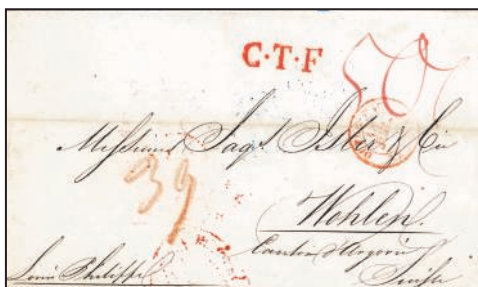 C·T·F
Messieurs Jaq. Isler & Cie
39
Wohlen
Canton d'Argovie
Suisse
Louis Philippe